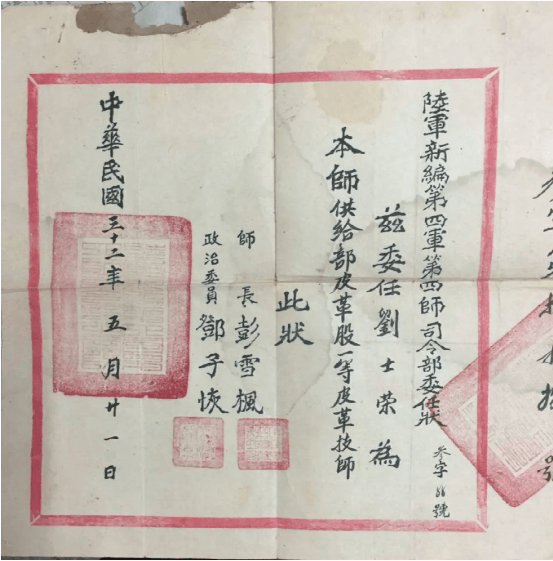 陸軍新編第四軍第四師司令部委任狀
參字 號
茲委任劉士荣為
本師供給部皮革股一等皮革技師
此狀
師長彭雪楓
政治委員鄧子恢
中華民國三十二年五月廿一日